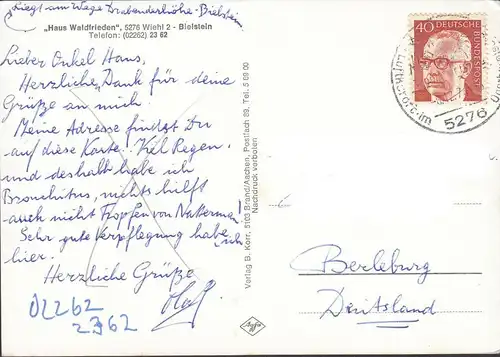 (Liegt am Wege Drabenderhöhe - Bielstein
„Haus Waldfrieden", 5276 Wiehl 2 - Bielstein
Telefon: (02262) 23 62
Lieber Onkel Hans,
Herzliche Dank für deine
Grüße an mich.
Meine Adresse findest Du
auf diese Karte. Viel Regen,
und deshalb habe ich
Bronchitus, nichts hilft
auch nicht Tropfen von Natterman!
Sehr gute Verpflegung habe ich
hier.
Herzliche Grüße
02262
2362
Verlag B. Korr, 5103 Brand/Aachen, Postfach 89, Tel. 5 09 00
Nachdruck verboten
Agfa
40 DEUTSCHE
BUNDESPOST
Luftkurort im
5276
Berleburg
Deutsland